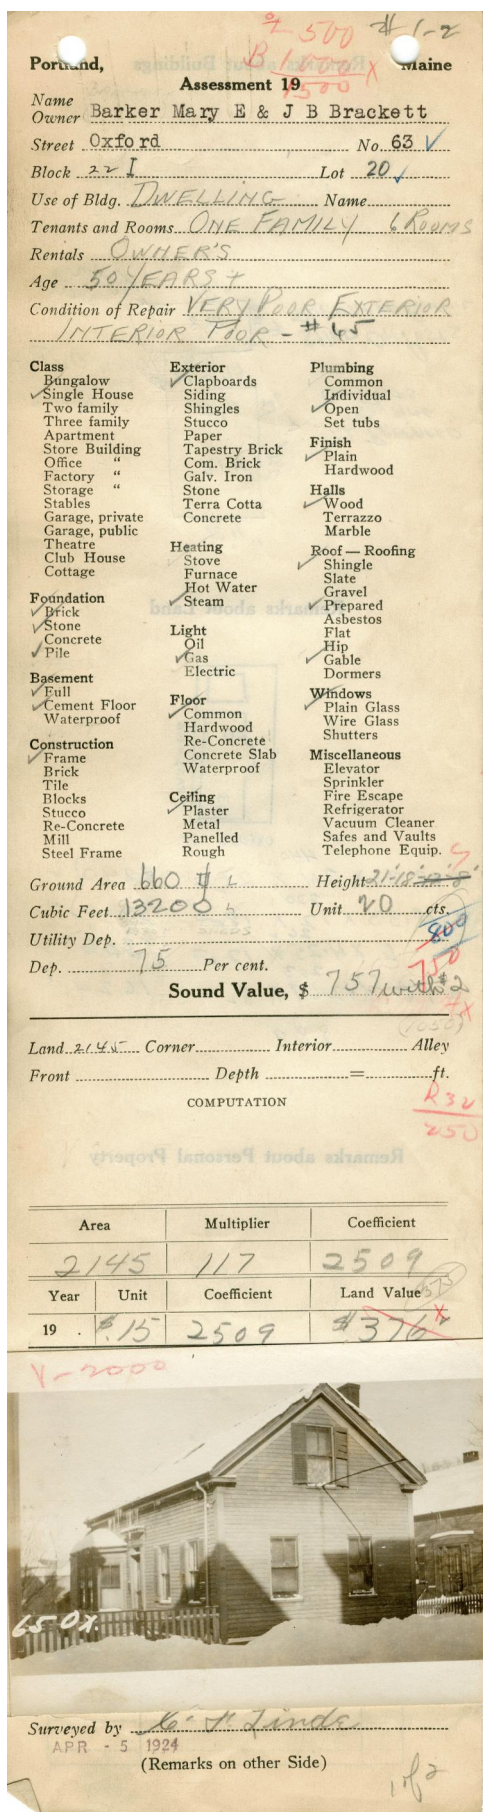 L 500 #1-2
B 1000 X
1500
Portland, Maine
Assessment 19
Name
Owner Barker Mary E & J B Brackett
Street Oxford No. 63 ✓
Block 22 I Lot 20 ✓
Use of Bldg. DWELLING Name
Tenants and Rooms ONE FAMILY 6 ROOMS
Rentals OWNER'S
Age 50 YEARS +
Condition of Repair VERY POOR EXTERIOR
INTERIOR POOR - #45
Class
Bungalow
✓ Single House
Two family
Three family
Apartment
Store Building
Office "
Factory "
Storage "
Stables
Garage, private
Garage, public
Theatre
Club House
Cottage
Foundation
✓ Brick
✓ Stone
Concrete
✓ Pile
Basement
✓ Full
✓ Cement Floor
Waterproof
Construction
✓ Frame
Brick
Tile
Blocks
Stucco
Re-Concrete
Mill
Steel Frame
Exterior
✓ Clapboards
Siding
Shingles
Stucco
Paper
Tapestry Brick
Com. Brick
Galv. Iron
Stone
Terra Cotta
Concrete
Heating
✓ Stove
Furnace
Hot Water
✓ Steam
Light
Oil
✓ Gas
Electric
Floor
✓ Common
Hardwood
Re-Concrete
Concrete Slab
Waterproof
Ceiling
✓ Plaster
Metal
Panelled
Rough
Plumbing
✓ Common
Individual
✓ Open
Set tubs
Finish
✓ Plain
Hardwood
Halls
✓ Wood
Terrazzo
Marble
Roof — Roofing
✓ Shingle
Slate
Gravel
✓ Prepared
Asbestos
Flat
✓ Hip
✓ Gable
Dormers
Windows
✓ Plain Glass
Wire Glass
Shutters
Miscellaneous
Elevator
Sprinkler
Fire Escape
Refrigerator
Vacuum Cleaner
Safes and Vaults
Telephone Equip.
Ground Area 660 Height 21-18
Cubic Feet 13200 Unit 20 cts.
Utility Dep. 800
Dep. 75 Per cent. 750
Sound Value, $ 757 with #2
Land 2145 Corner Interior Alley
Front Depth = ft.
COMPUTATION
R32
250
Remarks about Personal Property
Area Multiplier Coefficient
2145 117 2509
Year Unit Coefficient Land Value 375
19 . $.15 2509 $376 X
V-2000
650X.
Surveyed by
APR - 5 1924
(Remarks on other Side)
1 of 2